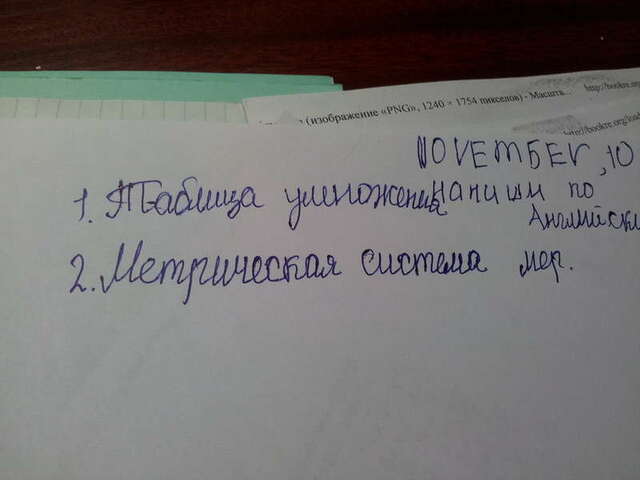 (изображение «PNG», 1240 × 1754 пикселов) - Масшта... http://bookre.org
http://bookre.org/load
NOVEMBER, 10
1. Таблица умножения напиши по
Английски
2. Метрическая система мер.